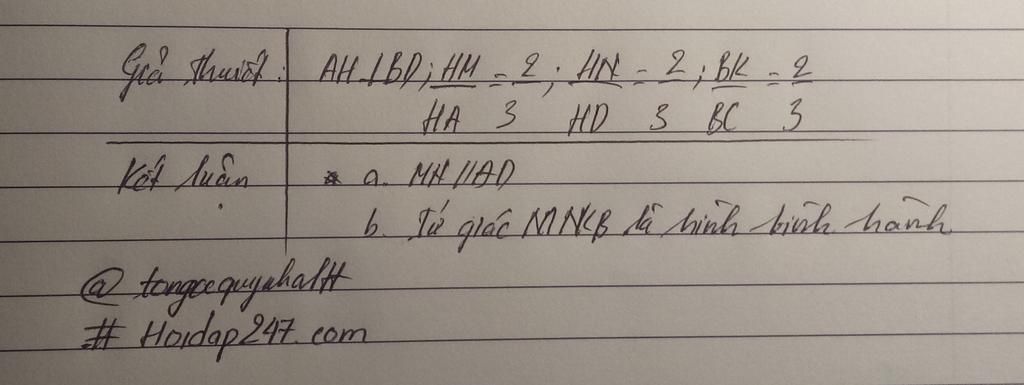 Giả thuiết: AH⊥BD; HM/HA = 2/3; HN/HD = 2/3; BK/BC = 2/3
Kết luận * a. MN//AD
b. Tứ giác MNKB là hình bình hành
@
# Hoidap247.com